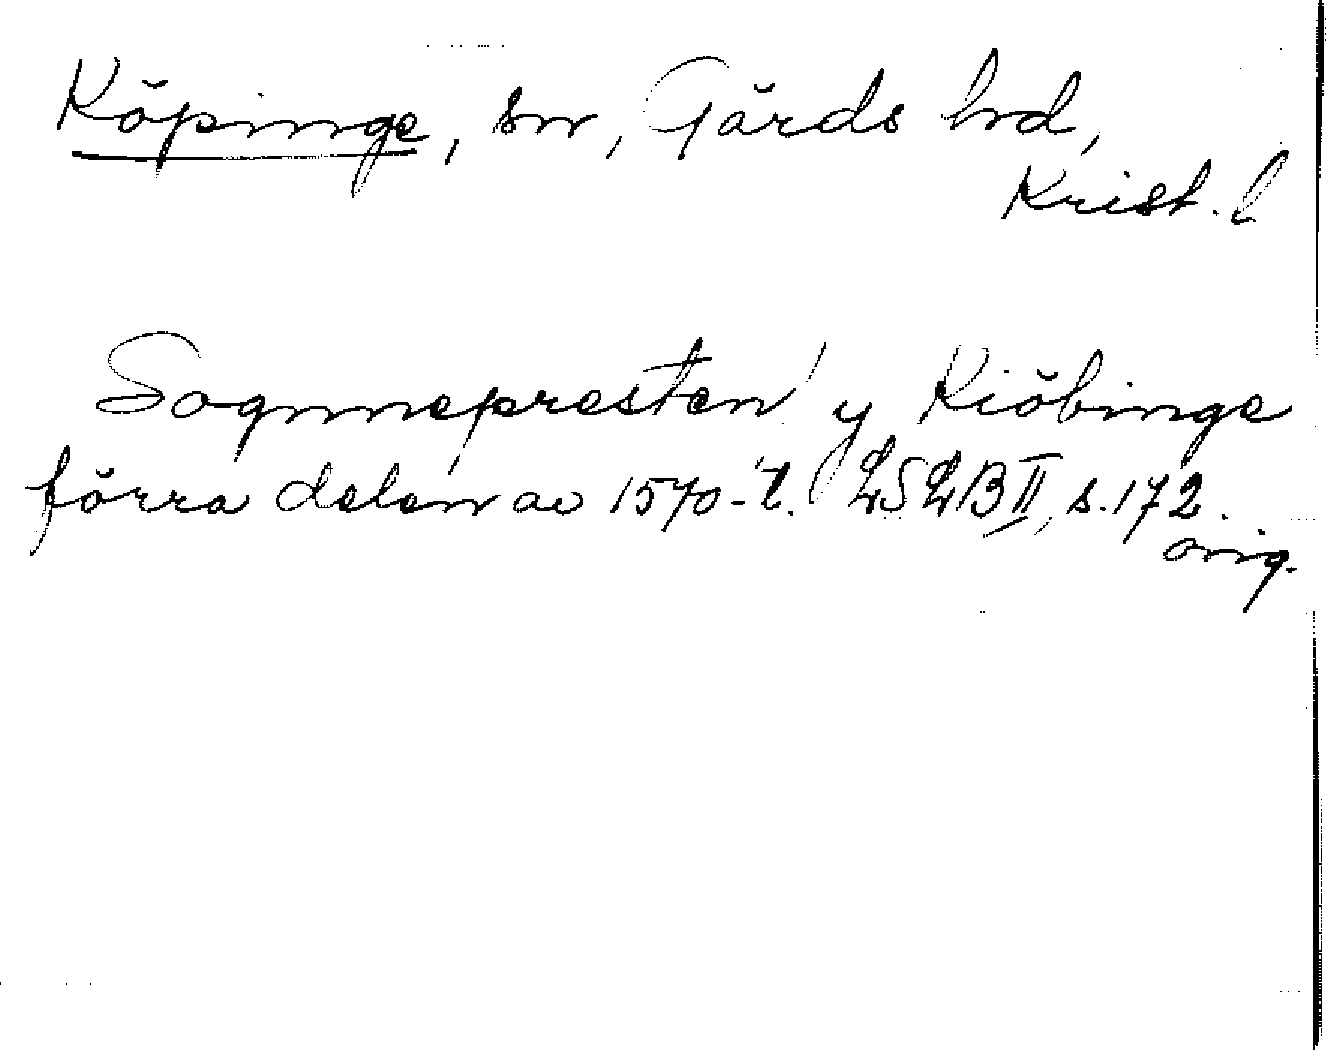 Köpinge, sn, Gärds hd,
Krist. l
Sognnepresten y Kiöbinge
förra delen av 1570-t. LSLB II, s. 172.
orig.